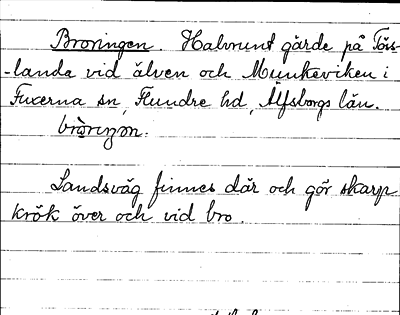 Broringen. Halvrunt gärde på Tös-
-landa vid älven och Munkeviken i
Fuxerna sn, Flundre hd, Älfsborgs län.
Landsväg finnes där och gör skarp
krök över och vid bro.